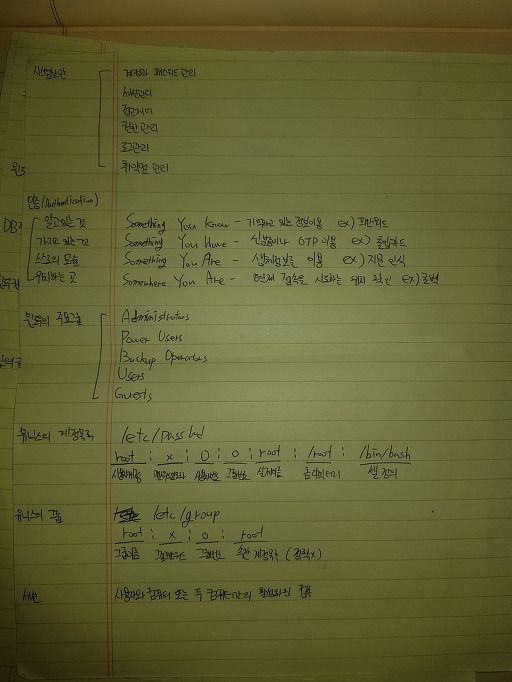 시스템보안 계정과 패스워드 관리
세션관리
접근제어
권한관리
로그관리
취약점 관리
인증(Authentication)
알고 있는 것 Something You Know - 기억하고 있는 정보이용 ex) 패스워드
가지고 있는 것 Something You Have - 신분증이나 OTP 이용 ex) 출입카드
스스로의 모습 Something You Are - 생체정보를 이용 ex) 지문 인식
위치하는 곳 Somewhere You Are - 현재 접속을 시도하는 위치 확인 ex) 콜백
윈도의 주요그룹 Administrators
Power Users
Backup Operators
Users
Guests
유닉스의 계정목록 /etc/passwd
root : x : 0 : 0 : root : /root : /bin/bash
사용자계정 패스워드암호화 사용자번호 그룹번호 실제이름 홈 디렉터리 셸 정의
유닉스의 그룹 /etc/group
root : x : 0 : root
그룹이름 그룹패스워드 그룹번호 속한 계정목록 (
세션 사용자와 컴퓨터 또는 두 컴퓨터간의 활성화된 접속